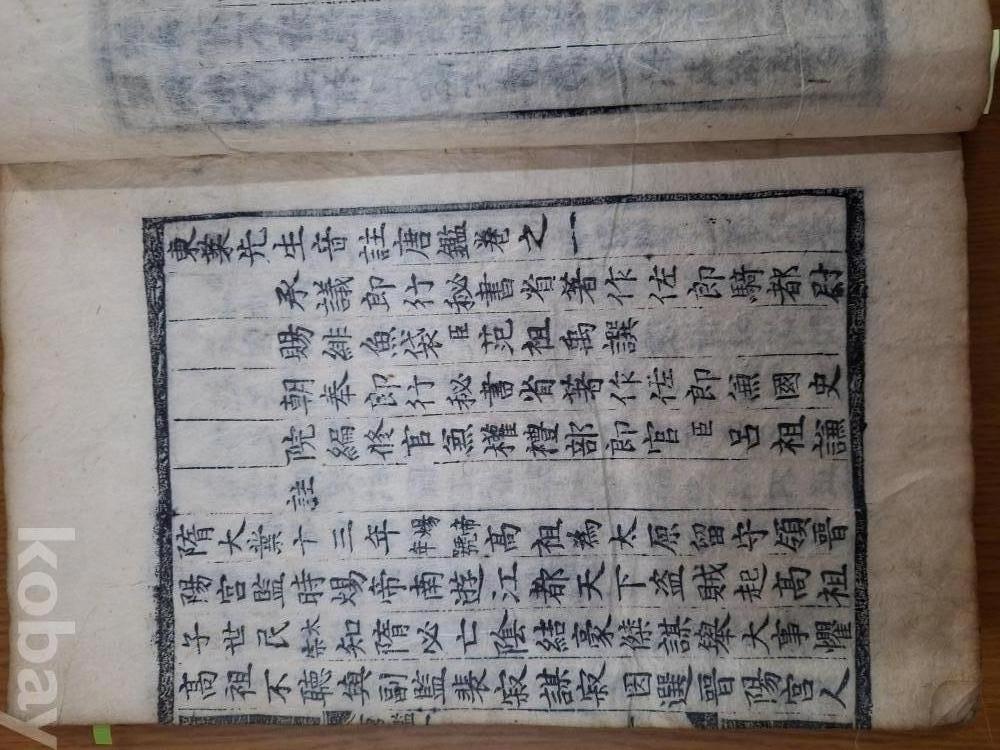 東萊先生音註唐鑑卷之一
承議郎行秘書省著作佐郎騎都尉
賜緋魚袋臣范祖禹譔
朝奉郎行秘書省著作佐郎兼國史
院編修官兼權禮部郎官臣呂祖謙
註
隋大業十三年煬帝年號高祖為太原留守領晉
陽宮監時煬帝南遊江都天下盗賊起高祖
子世民太宗知隋必亡陰結豪傑謀舉大事懼
高祖不聽與副監裴寂謀寂因選晉陽宮人
kobay